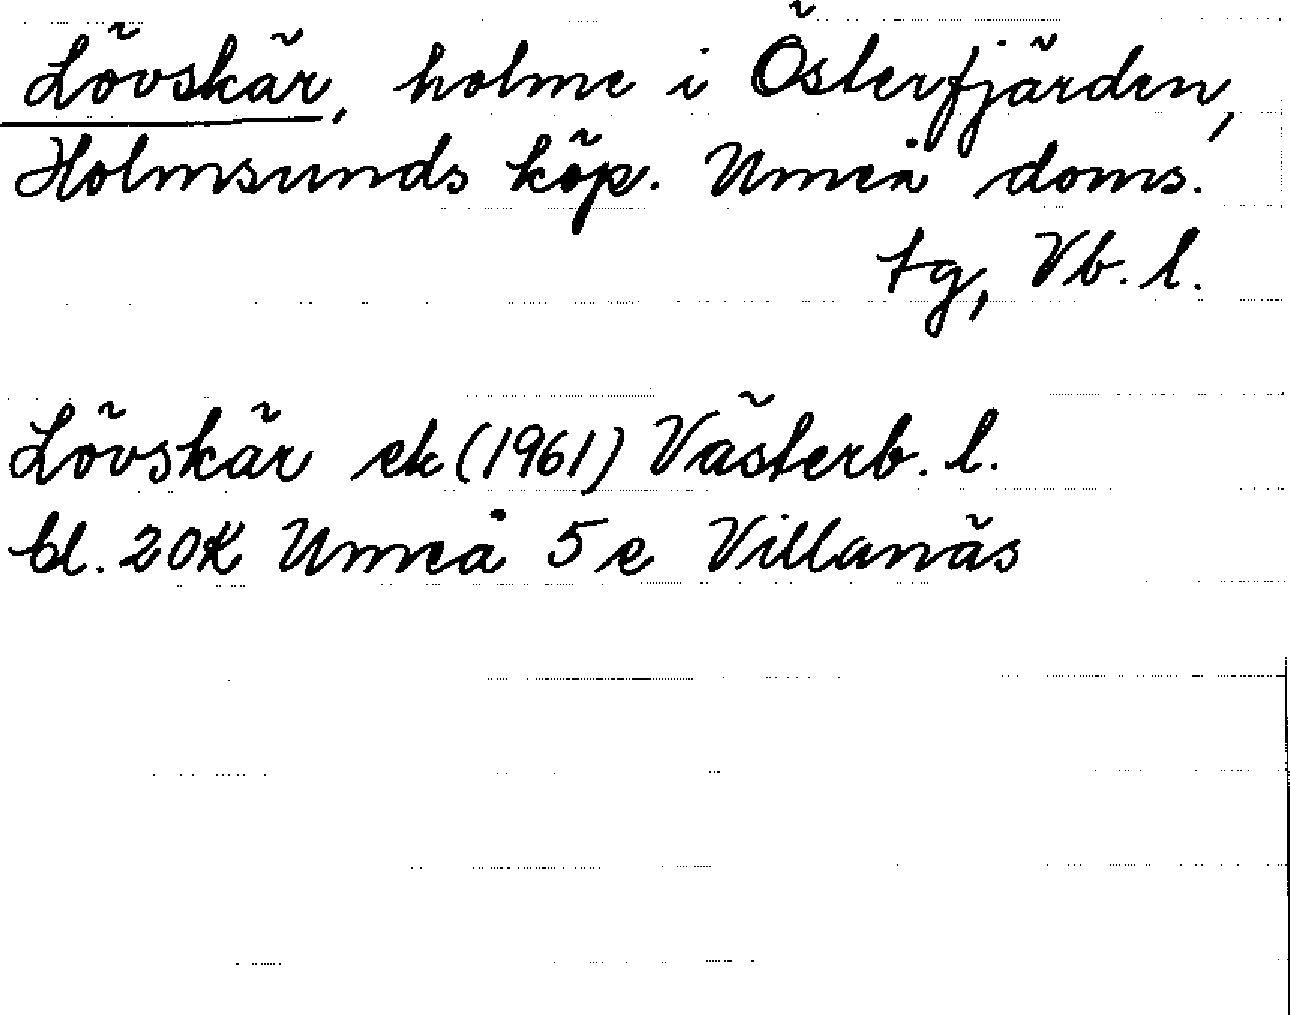 Lövskär, holme i Österfjärden,
Holmsunds köp. Umeå doms.
tg, Vb. l.
Lövskär ek (1961) Västerb. l.
bl. 20K Umeå 5e Villanäs